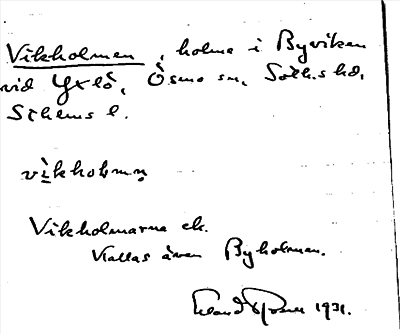 Vikholmen, holme i Byviken
vid Yxlö, Ösmo sn, Soth.s hd,
Sthlms l.
vikholmn̥
Vikholmarna ek.
Kallas även Byholmen.
1931.